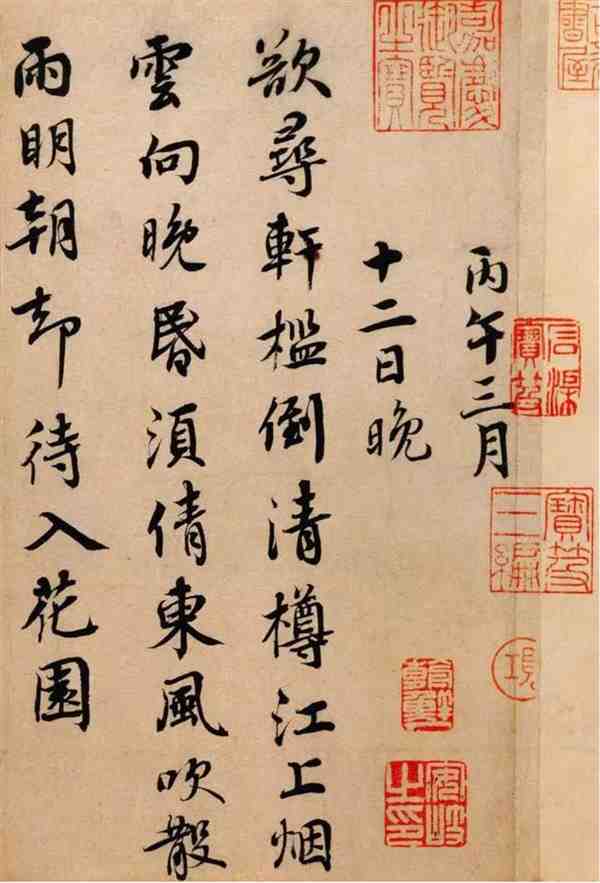 丙午三月
十二日晚
欲尋軒檻倒清樽江上烟
雲向晚昏須倩東風吹散
雨明朝却待入花園
嘉慶御覽之寶
石渠寶笈
寶笈三編